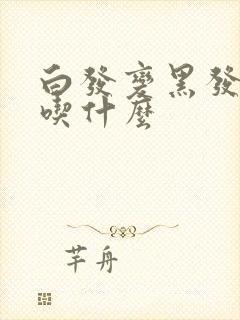 白發變黑發
喫什麽
芊舟